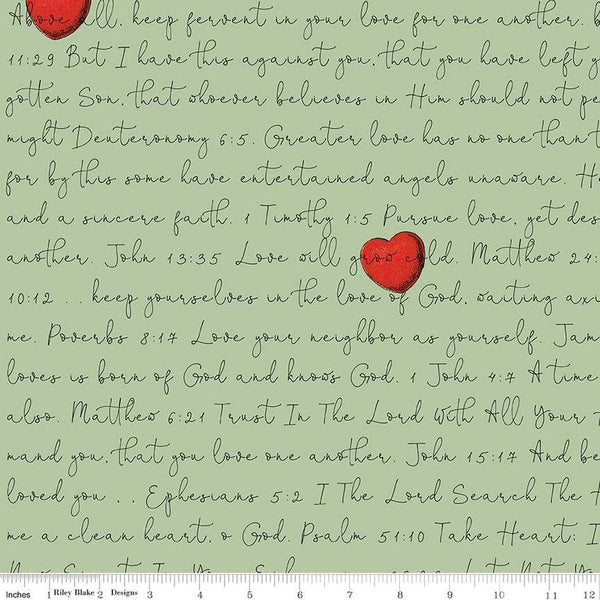 Above all, keep fervent in your love for one another. b
11:29 But I have this against you, that you have left y
gotten Son, that whoever believes in Him should not pe
might Deuteronomy 6:5. Greater love has no one than t
for by this some have entertained angels unaware. H
and a sincere faith. 1 Timothy 1:5 Pursue love, yet des
another. John 13:35 Love will grow cold. Matthew 24:
10:12 .. keep yourselves in the love of God, waiting axi
me. Poverbs 8:17 Love your neighbor as yourself. Jam
loves is born of God and knows God. 1 John 4:7 A time
also. Matthew 6:21 Trust In The Lord With All Your
mand you, that you love one another. John 15:17 And be
loved you .. Ephesians 5:2 I The Lord Search The H
me a clean heart, o God. Psalm 51:10 Take Heart; I
Inches 1 Riley Blake 2 Designs 3 4 5 6 7 8 9 10 11 12